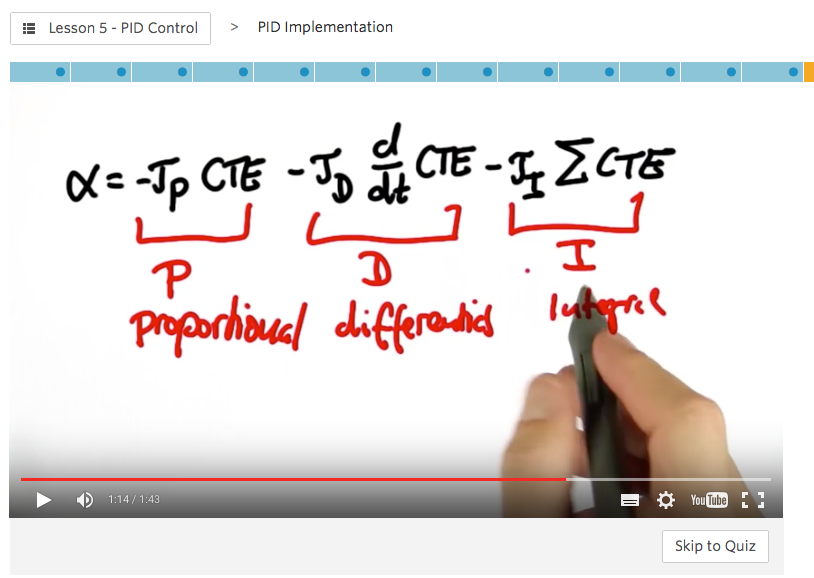 Lesson 5 - PID Control > PID Implementation
α = -τP CTE - τD d/dt CTE - τI Σ CTE
P D I
proportional differential integral
1:14 / 1:43 YouTube
Skip to Quiz